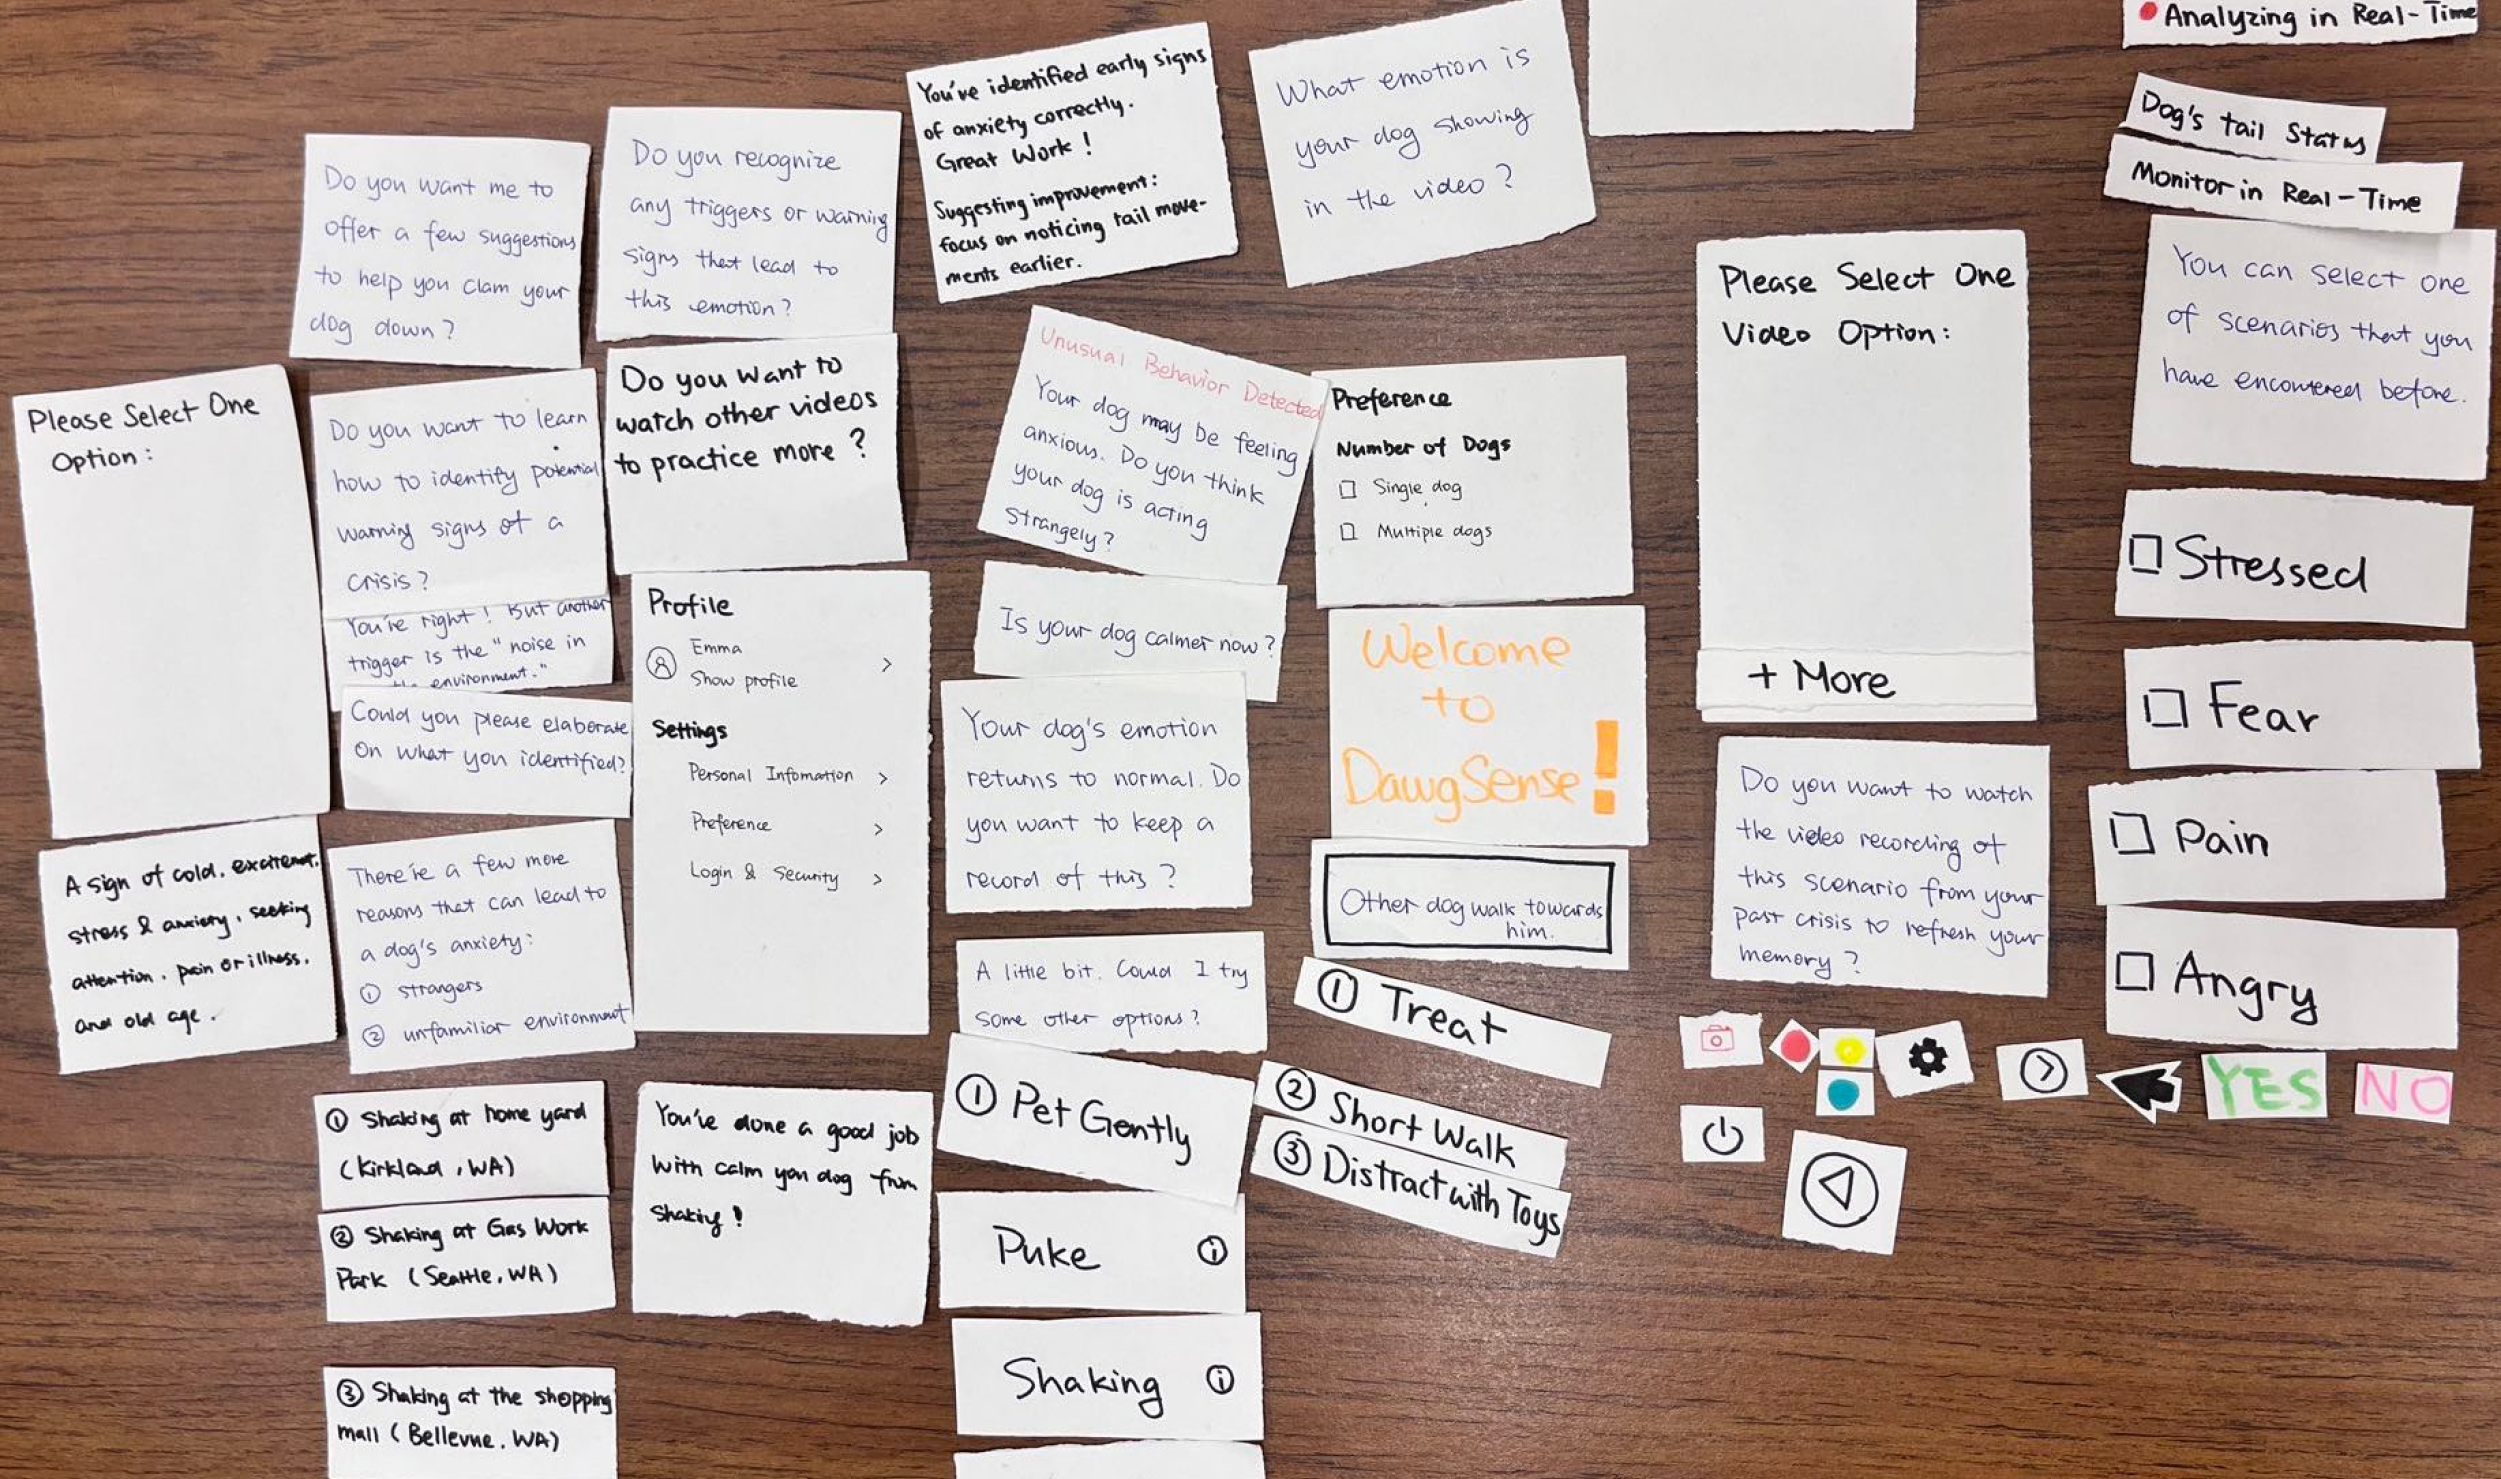 Analyzing in Real-Time
Dog's tail Status
Monitor in Real-Time
You can select one
of scenarios that you
have encountered before.
Stressed
Fear
Pain
Angry
YES
NO
What emotion is
your dog showing
in the video?
You've identified early signs
of anxiety correctly.
Great Work!
Suggesting improvement:
focus on noticing tail move-
ments earlier.
Do you recognize
any triggers or warning
signs that lead to
this emotion?
Do you want me to
offer a few suggestions
to help you clam your
dog down?
Please Select One
Option:
Do you want to learn
how to identify potential
warning signs of a
crisis?
You're right! But another
trigger is the "noise in
environment."
Could you please elaborate
on what you identified?
A sign of cold, excitement,
stress & anxiety, seeking
attention, pain or illness,
and old age.
There're a few more
reasons that can lead to
a dog's anxiety:
① strangers
② unfamiliar environment
① Shaking at home yard
(Kirkland, WA)
② Shaking at Gas Work
Park (Seattle, WA)
③ Shaking at the shopping
mall (Bellevue, WA)
Do you want to
watch other videos
to practice more?
Profile
Emma
Show profile
>
Settings
Personal Infomation >
Preference >
Login & Security >
You've done a good job
with calm you dog from
shaking!
Unusual Behavior Detected
Your dog may be feeling
anxious. Do you think
your dog is acting
strangely?
Is your dog calmer now?
Your dog's emotion
returns to normal. Do
you want to keep a
record of this?
A little bit. Could I try
some other options?
① Pet Gently
Puke
Shaking
Preference
Number of Dogs
Single dog
Multiple dogs
Welcome
to
DawgSense!
Other dog walk towards
him.
① Treat
② Short Walk
③ Distract with Toys
Please Select One
Video Option:
+ More
Do you want to watch
the video recording of
this scenario from your
past crisis to refresh your
memory?